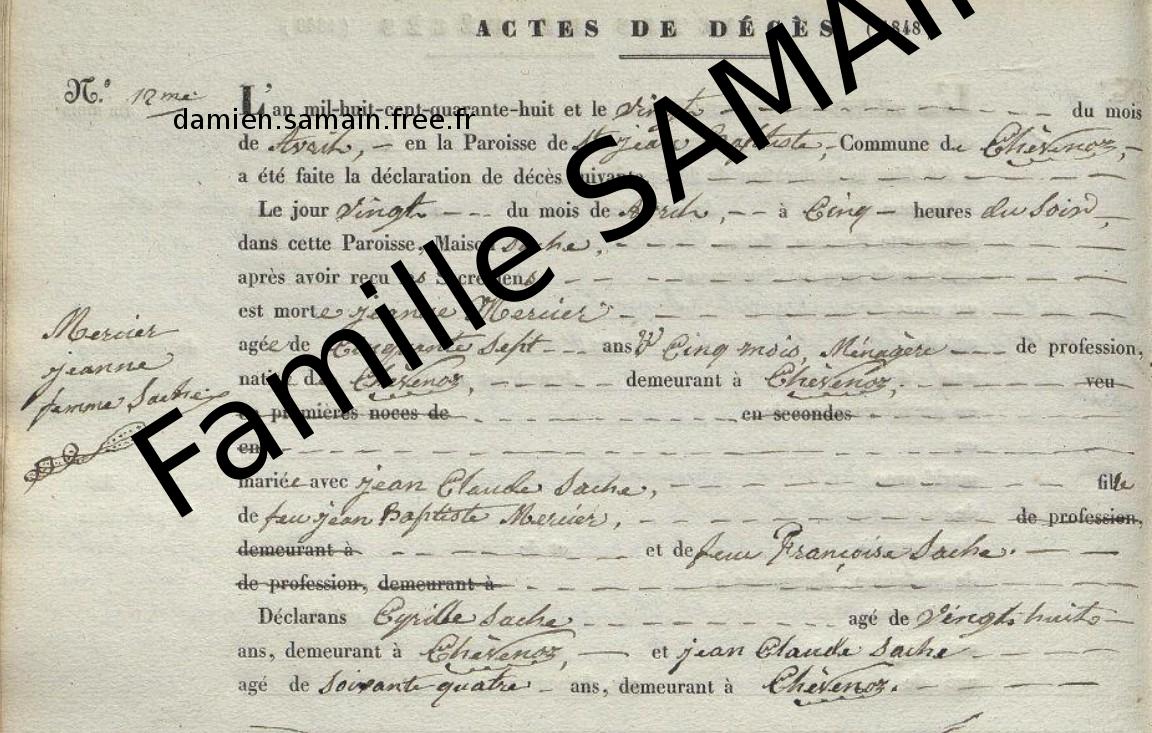 ACTES DE DÉCÈS (1848
N.º 12me
damien.samain.free.fr
Famille SAMAIN
L'an mil-huit-cent-quarante-huit et le vingt du mois
de Avril, en la Paroisse de St jean Baptiste, Commune de Chèvenoz,
a été faite la déclaration de décès suivante
Le jour vingt du mois de Avril, à Cinq heures du Soir,
dans cette Paroisse, Maison Sache,
après avoir reçu les Sacremens
est morte jeanne Mercier
agée de Cinquante Sept ans & Cinq mois, Ménagère de profession,
native de Chèvenoz, demeurant à Chèvenoz, veu
en premières noces de en secondes
en
mariée avec jean Claude Sache, fille
de feu jean Baptiste Mercier, de profession,
demeurant à et de feue Françoise Sache.
de profession, demeurant à
Déclarans Cyrille Sache agé de vingt huit
ans, demeurant à Chèvenoz, et jean Claude Sache
agé de Soixante quatre ans, demeurant à Chèvenoz.
Mercier
jeanne
femme Sache